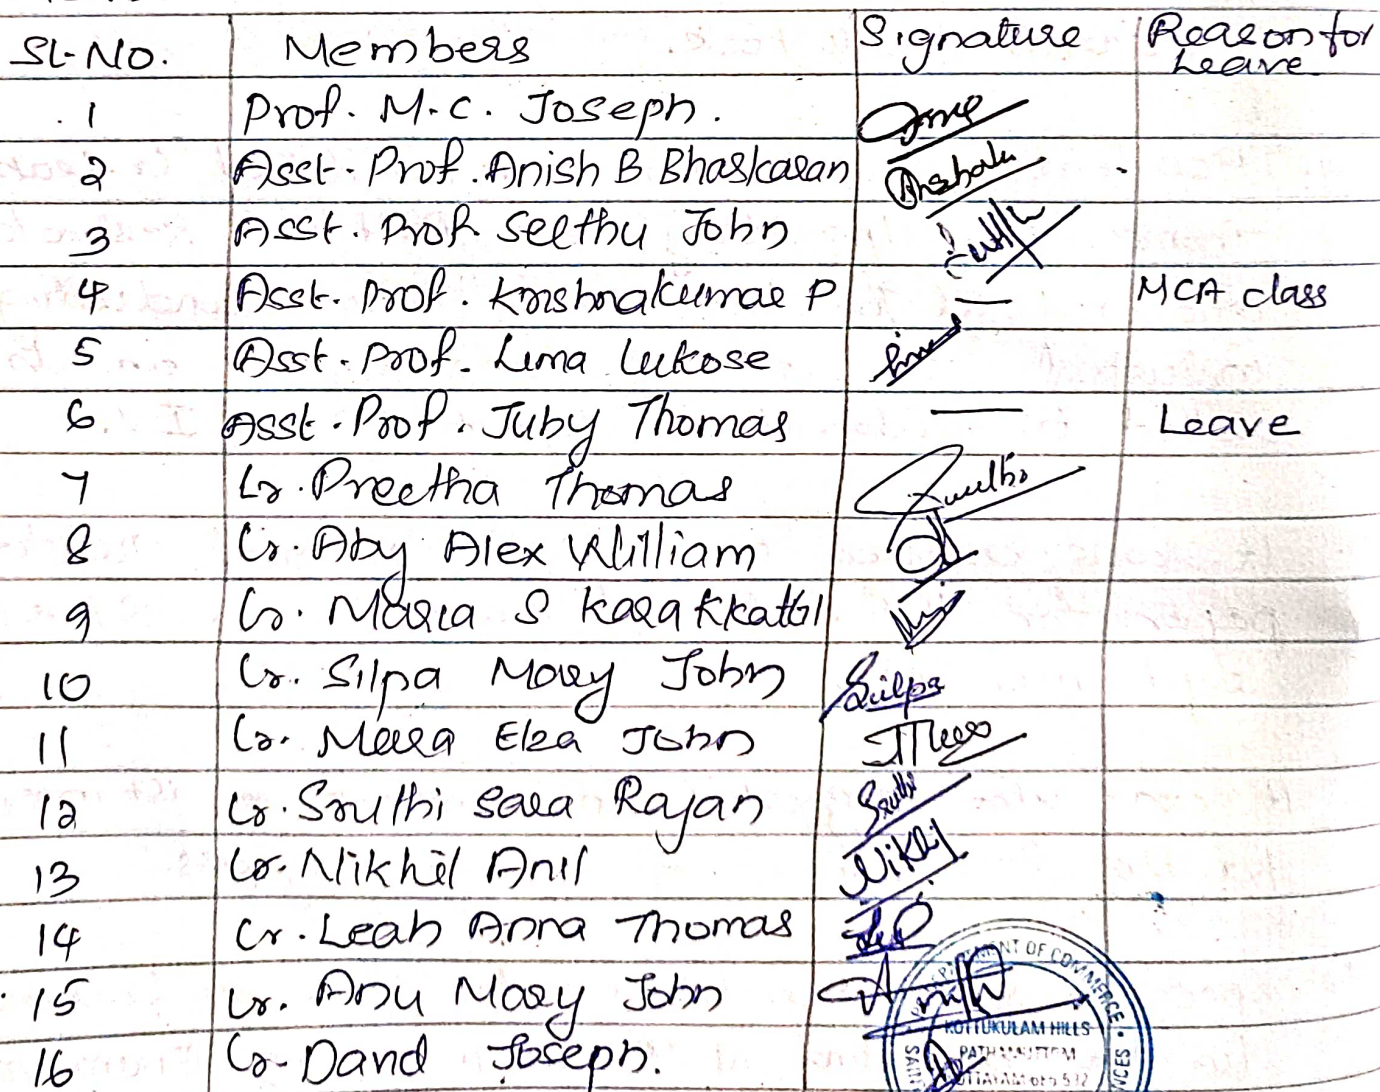 Sl. No. Members Signature Reason for Leave
1 Prof. M.C. Joseph.
2 Asst. Prof. Anish B Bhaskaran
3 Asst. Prof Seethu John
4 Asst. Prof. Krishnakumar P — MCA class
5 Asst. Prof. Lima Lukose
6 Asst. Prof. Juby Thomas — Leave
7 Lr. Preetha Thomas
8 Lr. Aby Alex William
9 Lr. Maria S Karakkattil
10 Lr. Silpa Mary John Silpa
11 Lr. Meera Elza John
12 Lr. Sruthi Sara Rajan Sruthi
13 Lr. Nikhil Anil Nikhil
14 Lr. Leah Anna Thomas
15 Lr. Anu Mary John
16 Lr. David Joseph.
DEPARTMENT OF COMMERCE
KOTTUKULAM HILLS
PATHAMUTTOM